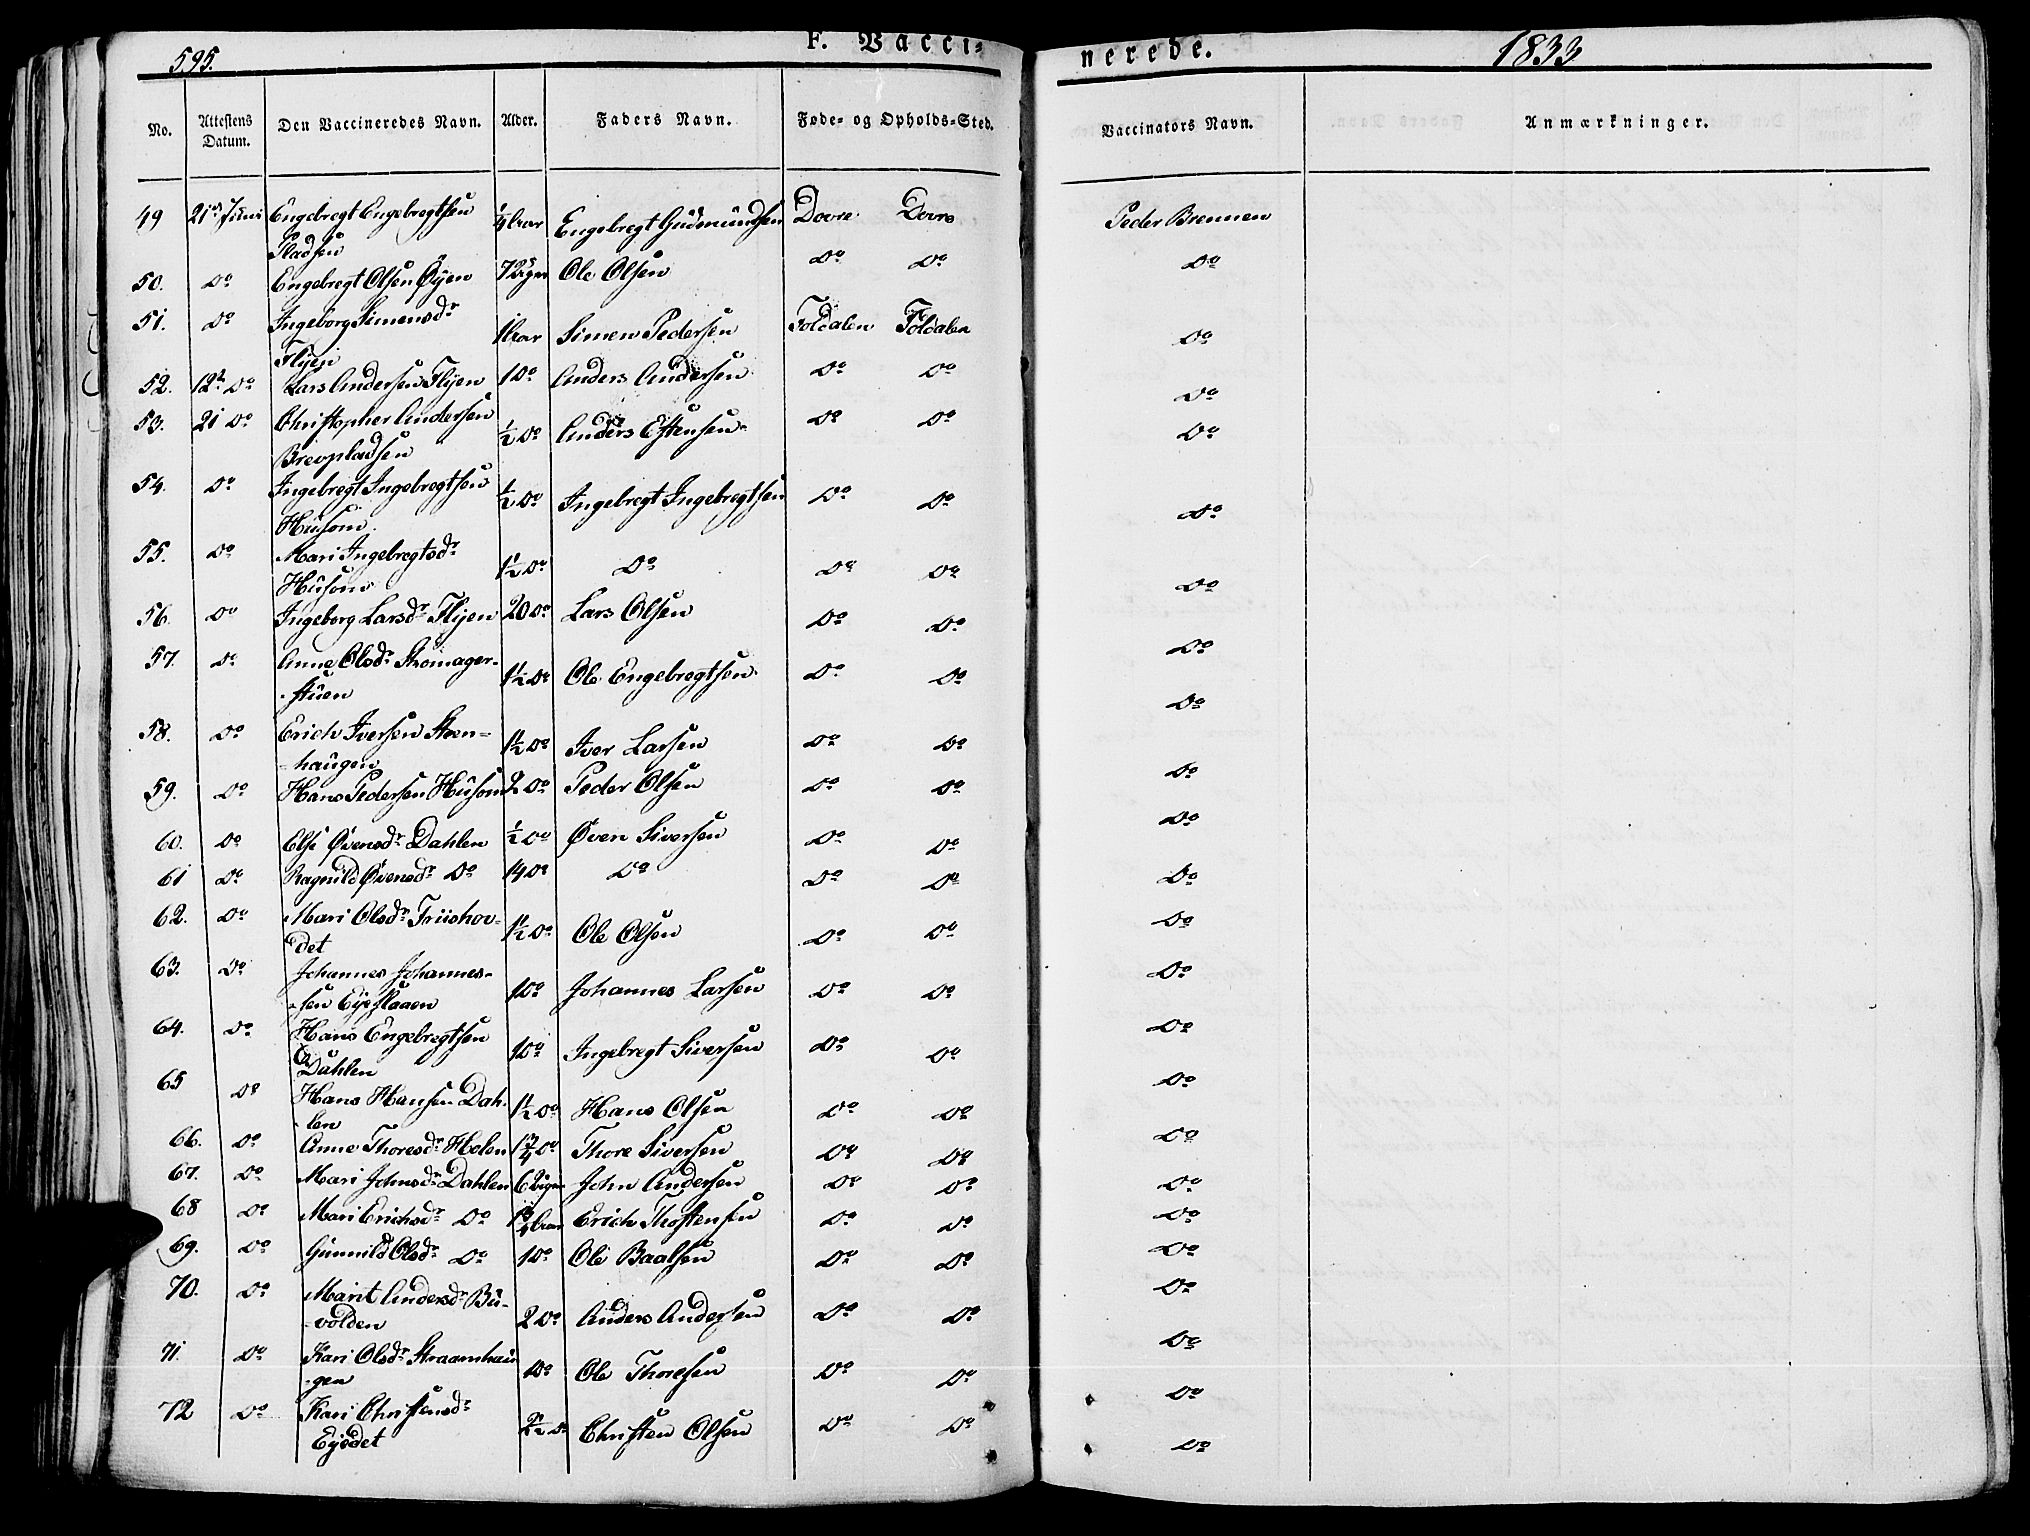 595.
F. Vacci-
nerede.
1833
No.
Attestens Datum.
Den Vaccineredes Navn.
Alder.
Faders Navn.
Føde- og Opholds-Sted.
Vaccinators Navn.
Anmærkninger.
49 21de Juni Engebregt Engebregtsen ¼ Aar Engebregt Gudmundsen Dovre Dovre Peder Brennen
Pladsen
50. Do Engebregt Olsen Øyen 7 Ole Olsen Do Do Do
51. Do Ingeborg Simensdr 1 Aar Simen Pedersen Foldalen Foldalen Do
Flyen
52. 12te Do Lars Andersen Flyen 1 Do Anders Andersen Do Do Do
53. 21 Do Christopher Andersen ½ Do Anders Estensen Do Do Do
Brevpladsen
54. Do Ingebregt Ingebregtsen ½ Do Ingebregt Ingebregtsen Do Do Do
Husom
55. Do Mari Ingebregtsdr 1½ Do Do Do Do Do
Husom
56. Do Ingeborg Larsdr Flyen 20 Do Lars Olsen Do Do Do
57. Do Anne Olsdr 1½ Do Ole Engebregtsen Do Do Do
-stuen
58. Do Erich Iversen Steen- 1½ Do Iver Larsen Do Do Do
-haugen
59. Do Hans Pedersen Husom 2 Do Peder Olsen Do Do Do
60. Do Else Øvensdr Dahlen ½ Do Øven Siversen Do Do Do
61 Do Ragnild Øvensdr Do 14 Do Do Do Do Do
62. Do Mari Olsdr Friishov- 1½ Do Ole Olsen Do Do Do
det
63. Do Johannes Johannes- 1 Do Johannes Larsen Do Do Do
-sen
64. Do Hans Engebregtsen 1 Do Ingebregt Siversen Do Do Do
Dahlen
65 Do Hans Hansen Dah- 1½ Do Hans Olsen Do Do Do
-len
66. Do Anne Thoresdr Holen 1¾ Do Thore Siversen Do Do Do
67. Do Mari Johnsdr Dahlen 6 John Andersen Do Do Do
68 Do Mari Erichsdr Do Erich Thostensen Do Do Do
69. Do Gunnild Olsdr Do 1 Do Ole Baalsen Do Do Do
70. Do Marit Andersdr Bu- 2 Do Anders Andersen Do Do Do
-volden
71. Do Kari Olsdr Straamhau- 1 Do Ole Thoresen Do Do Do
-gen
72 Do Kari Christensdr 2½ Do Christen Olsen Do Do Do
Eysdet